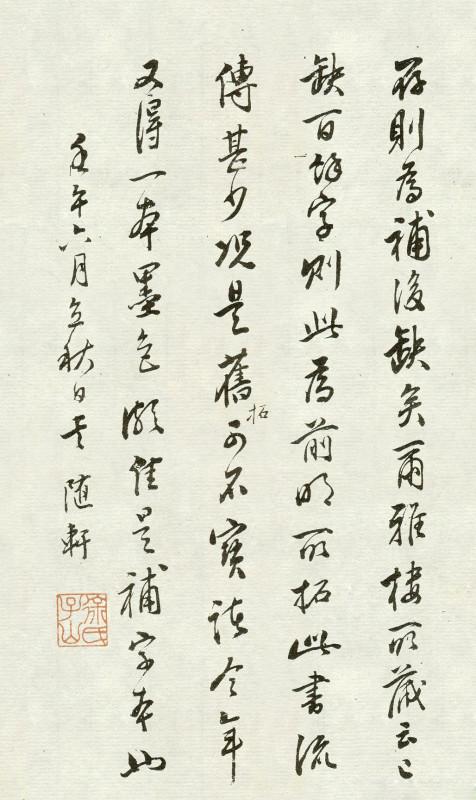 存則為補後缺矣爾雅樓所藏云云
缺百字則此為前明所拓此書流
傳甚少況是舊拓可不寶諸今年
又得一本墨色頗佳是補字本也
壬午六月立秋日 随軒
徐氏子山